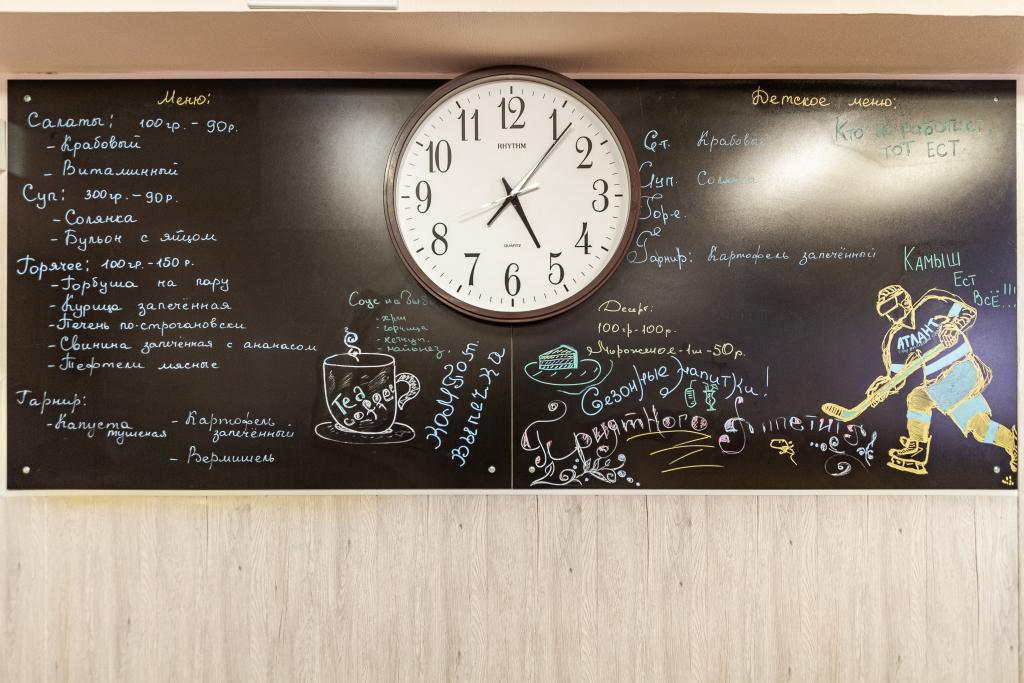 Меню:
Салаты: 100гр. - 90р.
- Крабовый
- Витаминный
Суп: 300гр. - 90р.
- Солянка
- Бульон с яйцом
Горячее: 100гр. - 150р.
- Горбуша на пару
- Курица запечённая
- Печень по-строгановски
- Свинина запечённая с ананасом
- Тефтели мясные
Гарнир:
- Капуста тушеная
- Картофель запечённый
- Вермишель
Соус на
- хрен
- горчица
- кетчуп.
- майонез.
Tea
Coffee
Компот.
Выпечка
12
1
2
3
4
5
6
7
8
9
10
11
RHYTHM
QUARTZ
Детское меню:
Сал. Крабовый
Суп. Солянка
Гор-е.
Гарнир: Картофель запечённый
Кто не работает,
тот ест
Десерт:
100гр-100р.
Мороженое-1ш-50р.
Сезонные напитки!
Приятного аппетита
Камыш
Ест
Всё!!!
АТЛАНТ